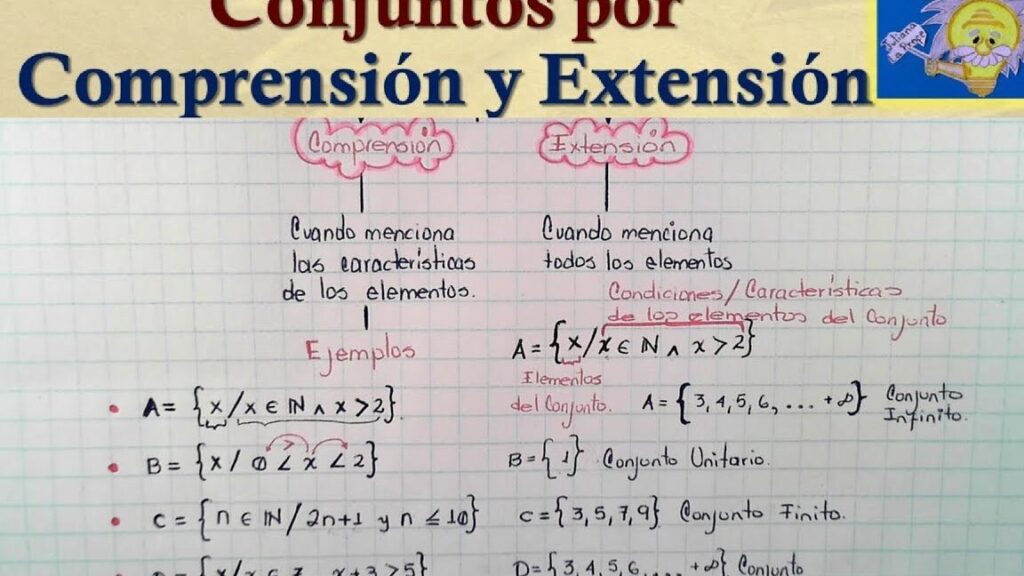 Conjuntos por
Comprensión y Extensión
Juliana
la Profe
Comprensión
Extensión
Cuando menciona
las características
de los elementos.
Cuando menciona
todos los elementos
Condiciones/Características
de los elementos del Conjunto
Ejemplos
A = {x/x ∈ ℕ ∧ x > 2}
Elementos
del Conjunto.
A = {x/x ∈ ℕ ∧ x > 2}.
A = {3,4,5,6,... +∞} Conjunto
Infinito.
>
B = {x/ 0 < x < 2}
B = {1} Conjunto Unitario.
C = {n ∈ ℕ/2n+1 y n ≤ 10}
C = {3,5,7,9} Conjunto Finito.
{x/x ∈ ℤ x+3 > 5}
D = {3,4,5,6,... +∞} Conjunto